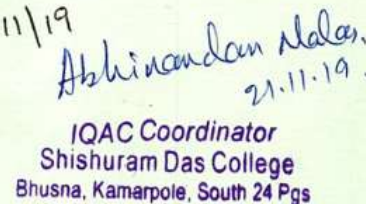 11/19
Abhinandan Malas.
21.11.19.
IQAC Coordinator
Shishuram Das College
Bhusna, Kamarpole, South 24 Pgs